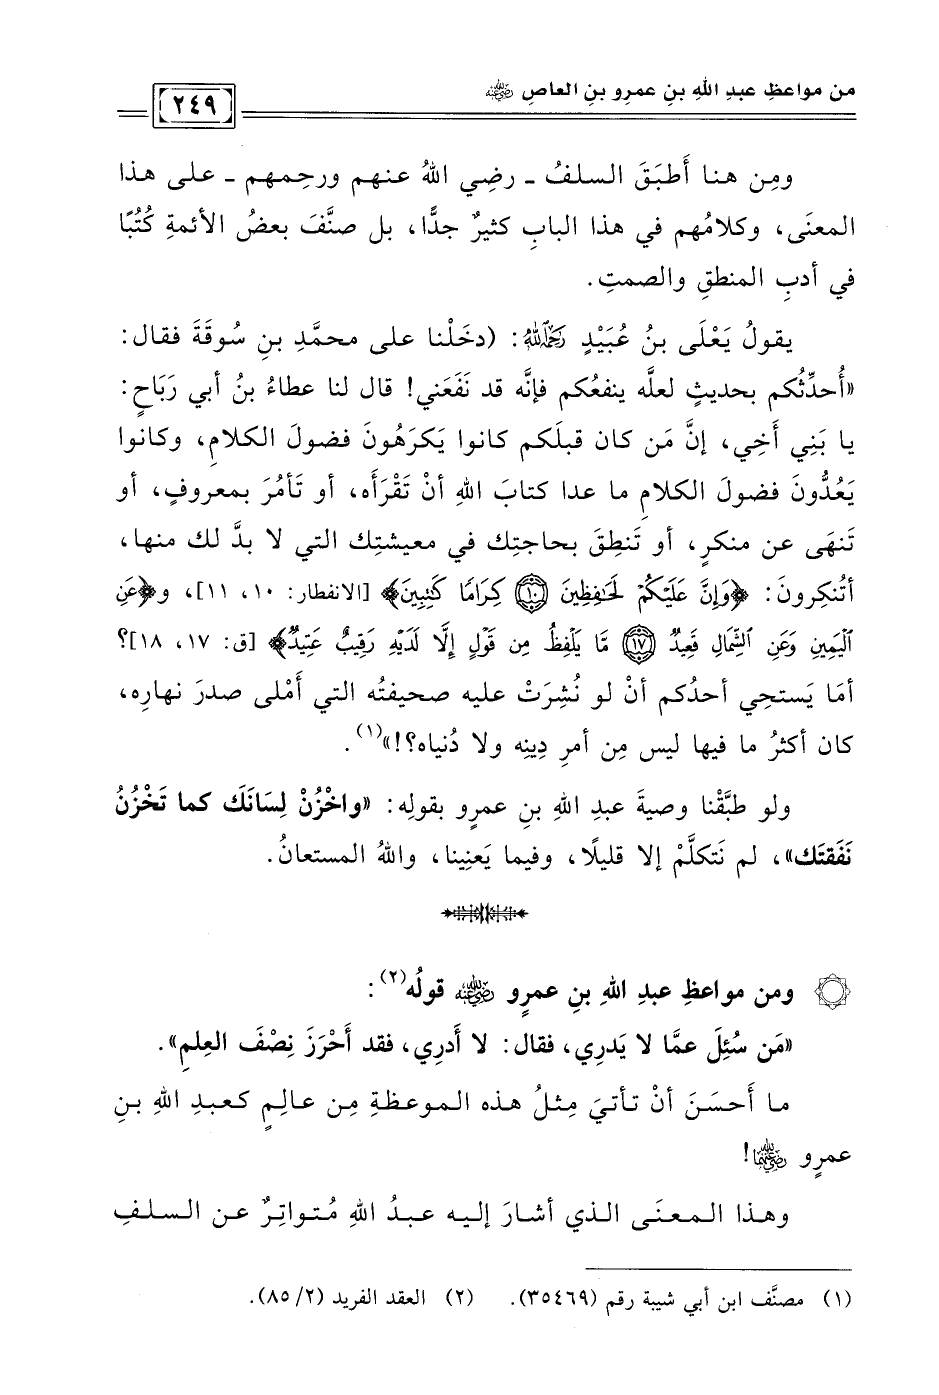 من مواعظِ عبدِ اللهِ بنِ عمرِو بنِ العاصِ رضي الله عنه
٢٤٩
ومِن هنا أَطبَقَ السلفُ ـ رضِي اللهُ عنهم ورحِمهم ـ على هذا
المعنَى، وكلامُهم في هذا البابِ كثيرٌ جدًّا، بل صنَّفَ بعضُ الأئمةِ كُتُبًا
في أدبِ المنطقِ والصمتِ.
يقولُ يَعْلَى بنُ عُبَيْدٍ رحمه الله: (دخَلْنا على محمَّدِ بنِ سُوقَةَ فقال:
«أُحدِّثُكم بحديثٍ لعلَّه ينفعُكم فإنَّه قد نَفَعَني! قال لنا عطاءُ بنُ أبي رَبَاحٍ:
يا بَنِي أخِي، إنَّ مَن كان قبلَكم كانوا يَكرَهُونَ فضولَ الكلامِ، وكانوا
يَعُدُّونَ فضولَ الكلامِ ما عدا كتابَ اللهِ أنْ تَقْرَأَه، أو تَأمُرَ بمعروفٍ، أو
تَنهَى عن منكرٍ، أو تَنطِقَ بحاجتِك في معيشتِك التي لا بدَّ لك منها،
أتُنكِرونَ: ﴿وَإِنَّ عَلَيْكُمْ لَحَافِظِينَ ١٠ كِرَامًا كَٰتِبِينَ﴾ [الانفطار: ١٠، ١١]، و﴿عَنِ
ٱلْيَمِينِ وَعَنِ ٱلشِّمَالِ قَعِيدٌ ١٧ مَّا يَلْفِظُ مِن قَوْلٍ إِلَّا لَدَيْهِ رَقِيبٌ عَتِيدٌ﴾ [ق: ١٧، ١٨]؟
أمَا يَستحِي أحدُكم أنْ لو نُشِرَتْ عليه صحيفتُه التي أَمْلى صدرَ نهارِه،
كان أكثرُ ما فيها ليس مِن أمرِ دِينِه ولا دُنياه؟!»(١).
ولو طبَّقْنا وصيةَ عبدِ اللهِ بنِ عمرٍو بقولِه: «واخْزُنْ لِسَانَكَ كما تَخْزُنُ
نَفَقتَك»، لم نَتكلَّمْ إلا قليلًا، وفيما يَعنِينا، واللهُ المستعانُ.
ومن مواعظِ عبدِ اللهِ بنِ عمرٍو رضي الله عنه قولُه(٢):
«مَن سُئِلَ عمَّا لا يَدرِي، فقال: لا أَدرِي، فقد أَحْرَزَ نِصْفَ العِلمِ».
ما أَحسَنَ أنْ تأتيَ مِثلُ هذه الموعظةِ مِن عالِمٍ كعبدِ اللهِ بنِ
عمرٍو رضي الله عنهما!
وهذا المعنَى الذي أشارَ إليه عبدُ اللهِ مُتواتِرٌ عن السلفِ
(١) مصنَّف ابن أبي شيبة رقم (٣٥٤٦٩). (٢) العقد الفريد (٢/ ٨٥).